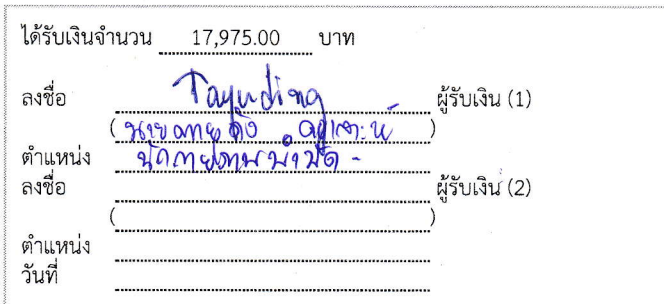 ได้รับเงินจำนวน 17,975.00 บาท
ลงชื่อ Tayuding ผู้รับเงิน (1)
(นาย)
ตำแหน่ง นักกายภาพบำบัด -
ลงชื่อ ผู้รับเงิน (2)
( )
ตำแหน่ง
วันที่